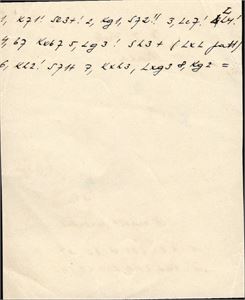 1, Kf1! Sb3+! 2, Kg1, Sf2!! 3, Le7! Lh4!
4, b7 Kxb7 5, Lg3! Sh3+ (LxL patt)
6, Kh2! Sf1+ 7, Kxh3, Lxg3 8, Kg2 =